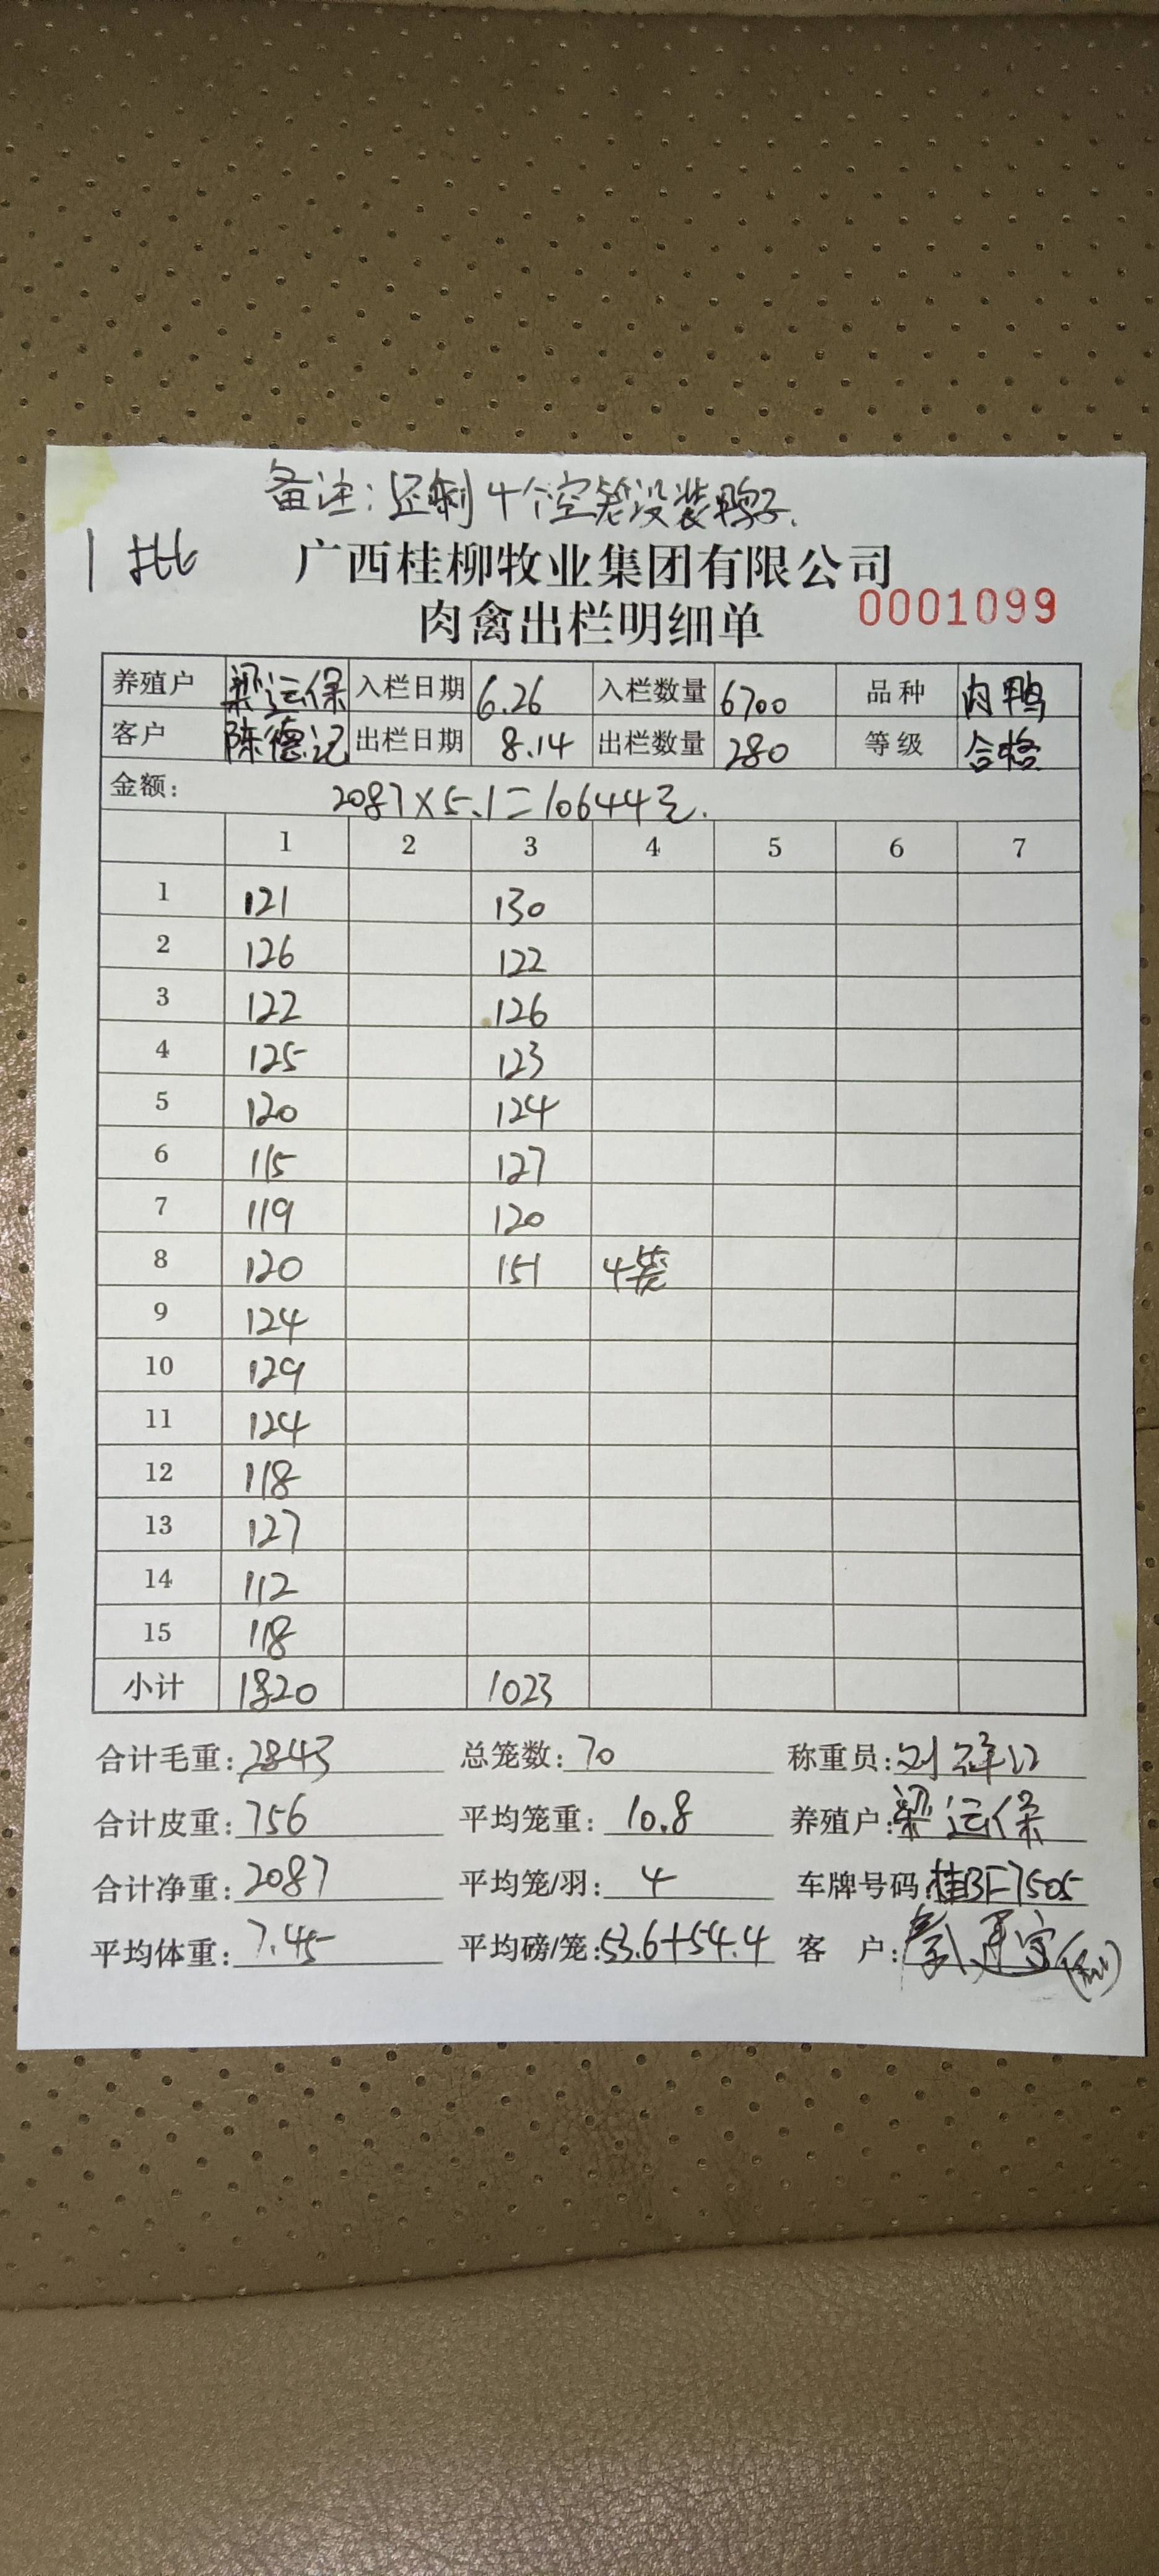 备注:还剩4个空笼没装鸭子.
1批 广西桂柳牧业集团有限公司
肉禽出栏明细单 0001099
养殖户 梁运保 入栏日期 6.26 入栏数量 6700 品种 肉鸭
客户 陈德记 出栏日期 8.14 出栏数量 280 等级 合格
金额: 2087×5.1=10644元.
1 2 3 4 5 6 7
1 121 130
2 126 122
3 122 126
4 125 123
5 120 124
6 115 127
7 119 120
8 120 151 4笼
9 124
10 129
11 124
12 118
13 127
14 112
15 118
小计 1820 1023
合计毛重: 2843 总笼数: 70 称重员: 刘
合计皮重: 756 平均笼重: 10.8 养殖户: 梁运保
合计净重: 2087 平均笼/羽: 4 车牌号码: 桂BF7505
平均体重: 7.45 平均磅/笼: 53.6+54.4 客 户: